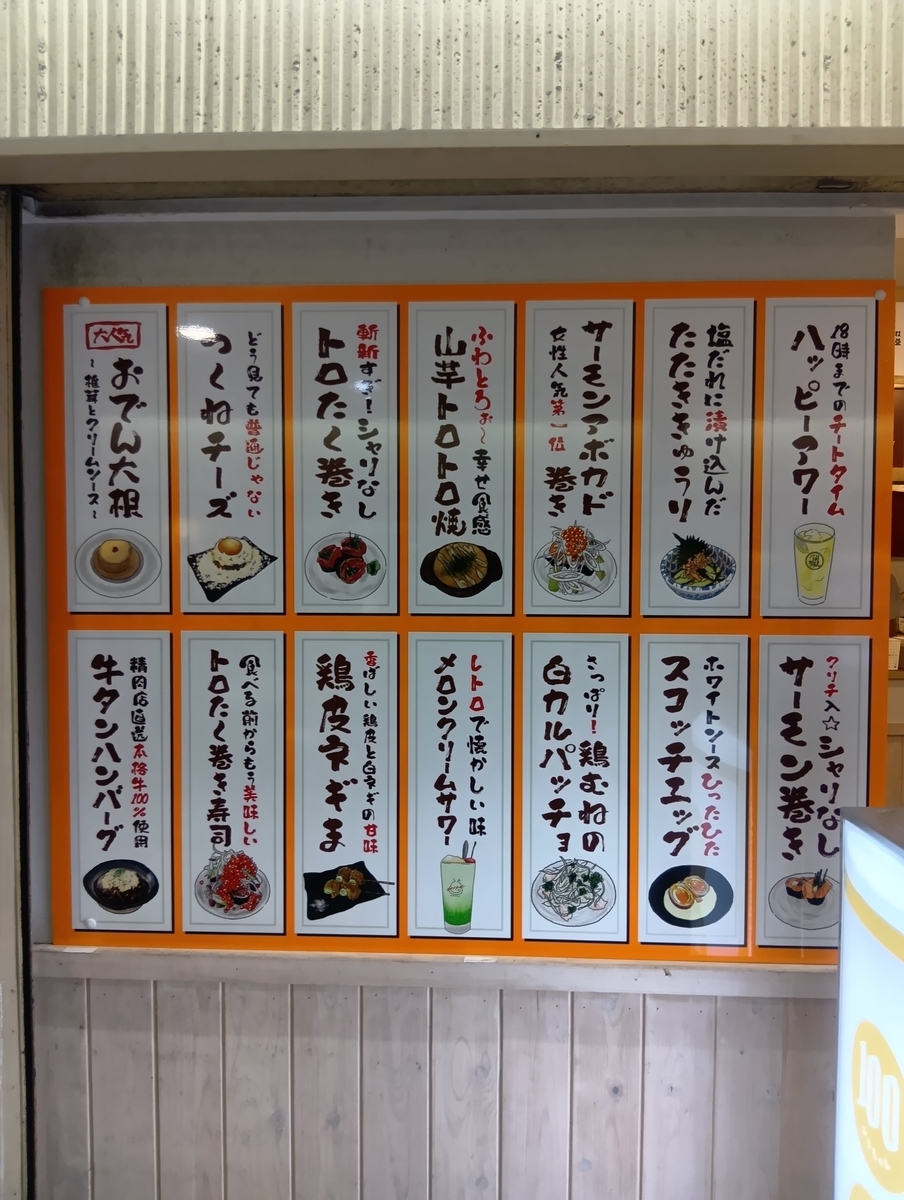 18時までのチートタイム
ハッピーアワー
塩だれに漬け込んだ
たたききゅうり
サーモンアボカド
巻き
女性人気第一位
ふわとろぉ～幸せ食感
山芋トロトロ焼
斬新すぎ!シャリなし
トロたく巻き
どう見ても普通じゃない
つくねチーズ
大人気
おでん大根
～椎茸とクリームソース～
クリチ入☆シャリなし
サーモン巻き
ホワイトソースひったひた
スコッチエッグ
さっぱり!鶏むねの
白カルパッチョ
レトロで懐かしい味
メロンクリームサワー
香ばしい鶏皮と白ネギの甘味
鶏皮ネギま
食べる前からもう美味しい
トロたく巻き寿司
精肉店直送本格牛100%使用
牛タンハンバーグ
100